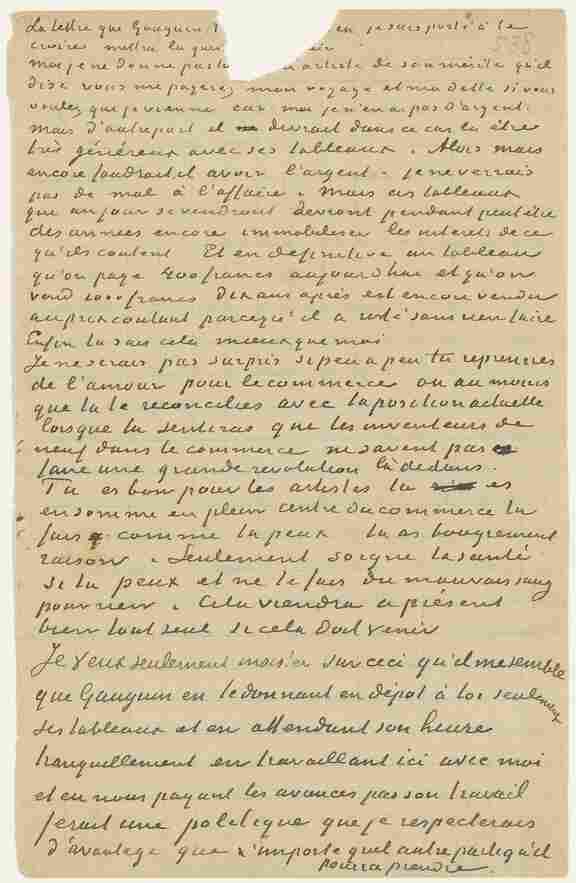 La lettre que Gauguin en je suis porté à le
croire, mettra la
moi je ne donne pas artiste de son mérite qu'il
dise vous me payerez mon voyage et ma dette si vous
voulez que je vienne car moi je n'en ai pas d'argent.
Mais d'autrepart il devrait dans ce cas là être
très généreux avec ses tableaux. Alors mais
encore faudrait il avoir l'argent. je ne verrais
pas de mal à l'affaire. mais ces tableaux
qui un jour se vendront devront pendant peut être
des années encore immobiliser les intérets de ce
qu'ils coutent Et en définitive un tableau
qu'on paye 400 francs aujourd'hui et qu'on
vend 1000 francs dix ans après est encore vendu
au prix coutant parcequ'il a resté sans rien faire
Enfin tu sais cela mieux que moi
Je ne serais pas surpris si peu à peu tu reprennes
de l'amour pour le commerce ou au moins
que tu te reconcilies avec ta position actuelle
lorsque tu sentiras que les inventeurs de
neuf dans le commerce ne savent pas
faire une grande revolution là dedans.
Tu es bon pour les artistes tu es
en somme en plein centre du commerce tu
fais comme tu peux tu as bougrement
raison. Seulement soigne ta santé
si tu peux et ne te fais du mauvais sang
pour rien. Cela viendra à présent
bien tout seul si cela doit venir
Je veux seulement moi sur ceci qu'il me semble
que Gauguin en te donnant en dépot à toi seulement
ses tableaux et en attendant son heure
tranquillement en travaillant ici avec moi
et en nous payant les avances par son travail
ferait une politique que je respecterais
d'avantage que n'importe quel autre parti qu'il
pourra prendre.